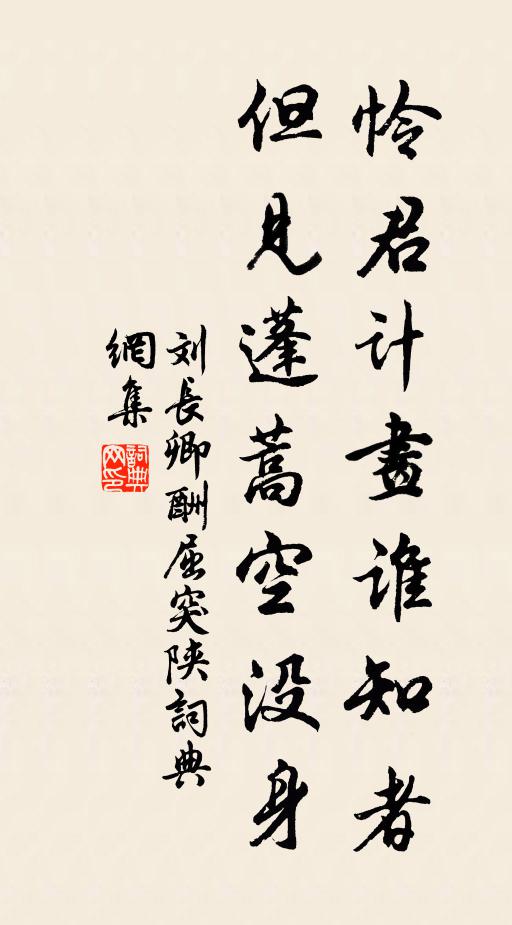 怜君计畫谁知者
但见蓬蒿空没身
刘長卿酬屈突陕詞典
網集
詞典
网印